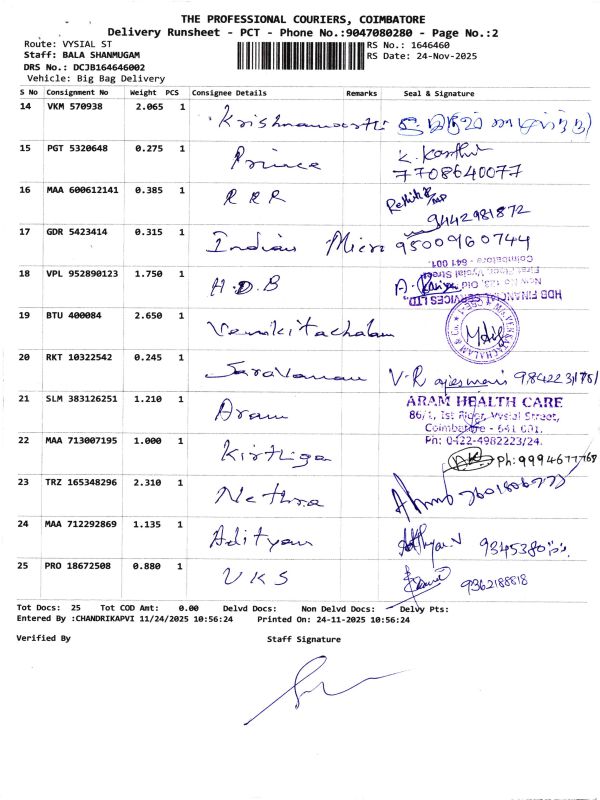 THE PROFESSIONAL COURIERS, COIMBATORE
Delivery Runsheet - PCT - Phone No.:9047080280 - Page No.:2
Route: VYSIAL ST
RS No.: 1646460
Staff: BALA SHANMUGAM
RS Date: 24-Nov-2025
DRS No.: DCJB164646002
Vehicle: Big Bag Delivery
S No Consignment No Weight PCS Consignee Details Remarks Seal & Signature
14 VKM 570938 2.065 1 Krishnamoorthi
15 PGT 5320648 0.275 1 Prince K. Karthi
7708640077
16 MAA 600612141 0.385 1 R R R
9442981872
17 GDR 5423414 0.315 1 Indian Micro 9500960744
18 VPL 952890123 1.750 1 H.D.B
HDB FINANCIAL SERVICES LTD
New No 123, Old
First Floor, Vysial Street
Coimbatore - 641 001.
19 BTU 400084 2.650 1 Venkitachalam
20 RKT 10322542 0.245 1 Saravanan V.R
21 SLM 383126251 1.210 1 Aram
ARAM HEALTH CARE
86/1, 1st Floor, Vysial Street,
Coimbatore - 641 001.
Ph: 0422-4982223/24.
22 MAA 713007195 1.000 1 Kirthiga Ph:9994677768
23 TRZ 165348296 2.310 1 Nethra
24 MAA 712292869 1.135 1 Adityan
25 PRO 18672508 0.880 1 VKS 9362188818
Tot Docs: 25 Tot COD Amt: 0.00 Delvd Docs: Non Delvd Docs: Delvy Pts:
Entered By :CHANDRIKAPVI 11/24/2025 10:56:24 Printed On: 24-11-2025 10:56:24
Verified By Staff Signature